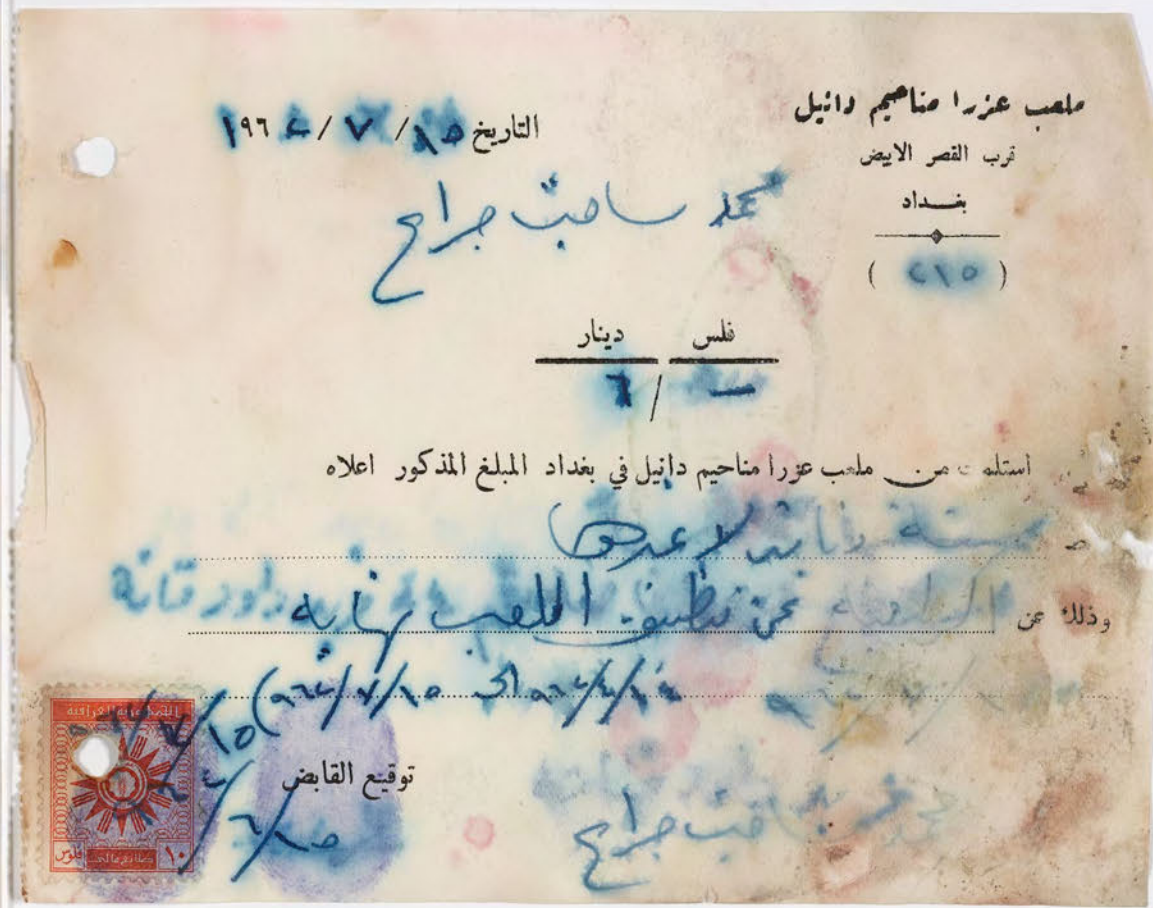 ملعب عزرا مناحيم دانيل
قرب القصر الابيض
بغداد
(٢١٥)
التاريخ ١٥/٧/١٩٦٤
محمد صاحب جراح
فلس دينار
٦/—
استلمت من ملعب عزرا مناحيم دانيل في بغداد المبلغ المذكور اعلاه
ستة دنانير لا غيرها
وذلك عن
عن تنظيف الملعب
الى ١٥/٧/٩٦٤)
توقيع القابض
محمد صاحب جراح
١٠ فلوس